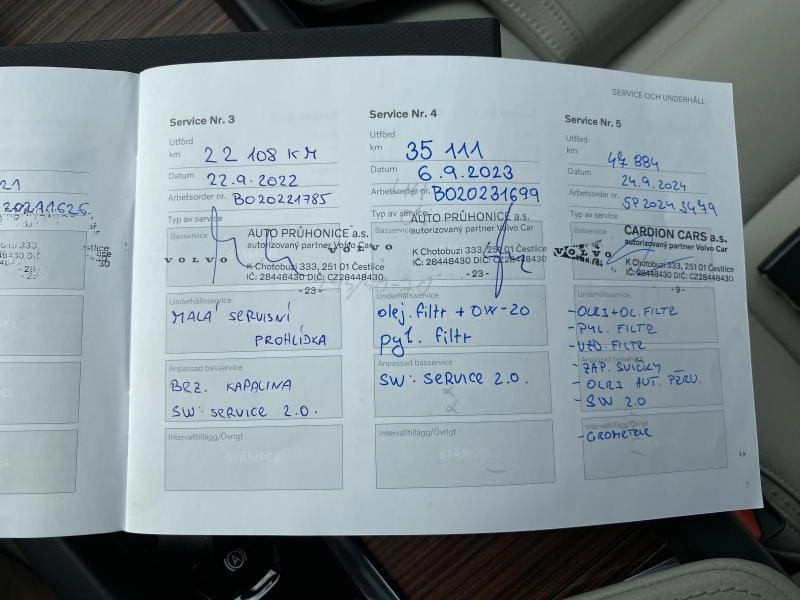 SERVICE OCH UNDERHÅLL
21
333,
Čestlice
-28-
Service Nr. 3
Utförd
km 22 108 KM
Datum 22.9.2022
Arbetsorder nr. BO20221785
Typ av service
Basservice
VOLVO
AUTO PRŮHONICE a.s.
autorizovaný partner Volvo Car
K Chotobuzi 333, 251 01 Čestlice
IČ: 28448430 DIČ: CZ28448430
-23-
Underhållsservice
MALÁ SERVISNÍ
PROHLÍDKA
Anpassad basservice
BRZ. KAPALINA
SW: SERVICE 2.0.
Intervalltillägg/Övrigt
STÄMPEL
Service Nr. 4
Utförd
km 35 111
Datum 6.9.2023
Arbetsorder nr. BO20231699
Typ av service
Basservice
VOLVO
AUTO PRŮHONICE a.s.
autorizovaný partner Volvo Car
K Chotobuzi 333, 251 01 Čestlice
IČ: 28448430 DIČ: CZ28448430
-23-
Underhållsservice
olej. filtr + 0W-20
pyl. filtr
Anpassad basservice
SW: SERVICE 2.0.
Intervalltillägg/Övrigt
STÄMPEL
Service Nr. 5
Utförd
km 47 884
Datum 24.9.2024
Arbetsorder nr. SP20243479
Typ av service
Basservice
VOLVO
CARDION CARS a.s.
autorizovaný partner Volvo Car
K Chotobuzi 333, 251 01 Čestlice
IČ: 28448430 DIČ: CZ28448430
-9-
Underhållsservice
- OLEJ + OL. FILTR
- PYL. FILTR
- VZD. FILTR
Anpassad basservice
- ZAP. SVÍČKY
- OLEJ AUT. PŘEV.
- SW 2.0
Intervalltillägg/Övrigt
- GEOMETRIE
STÄMPEL
7